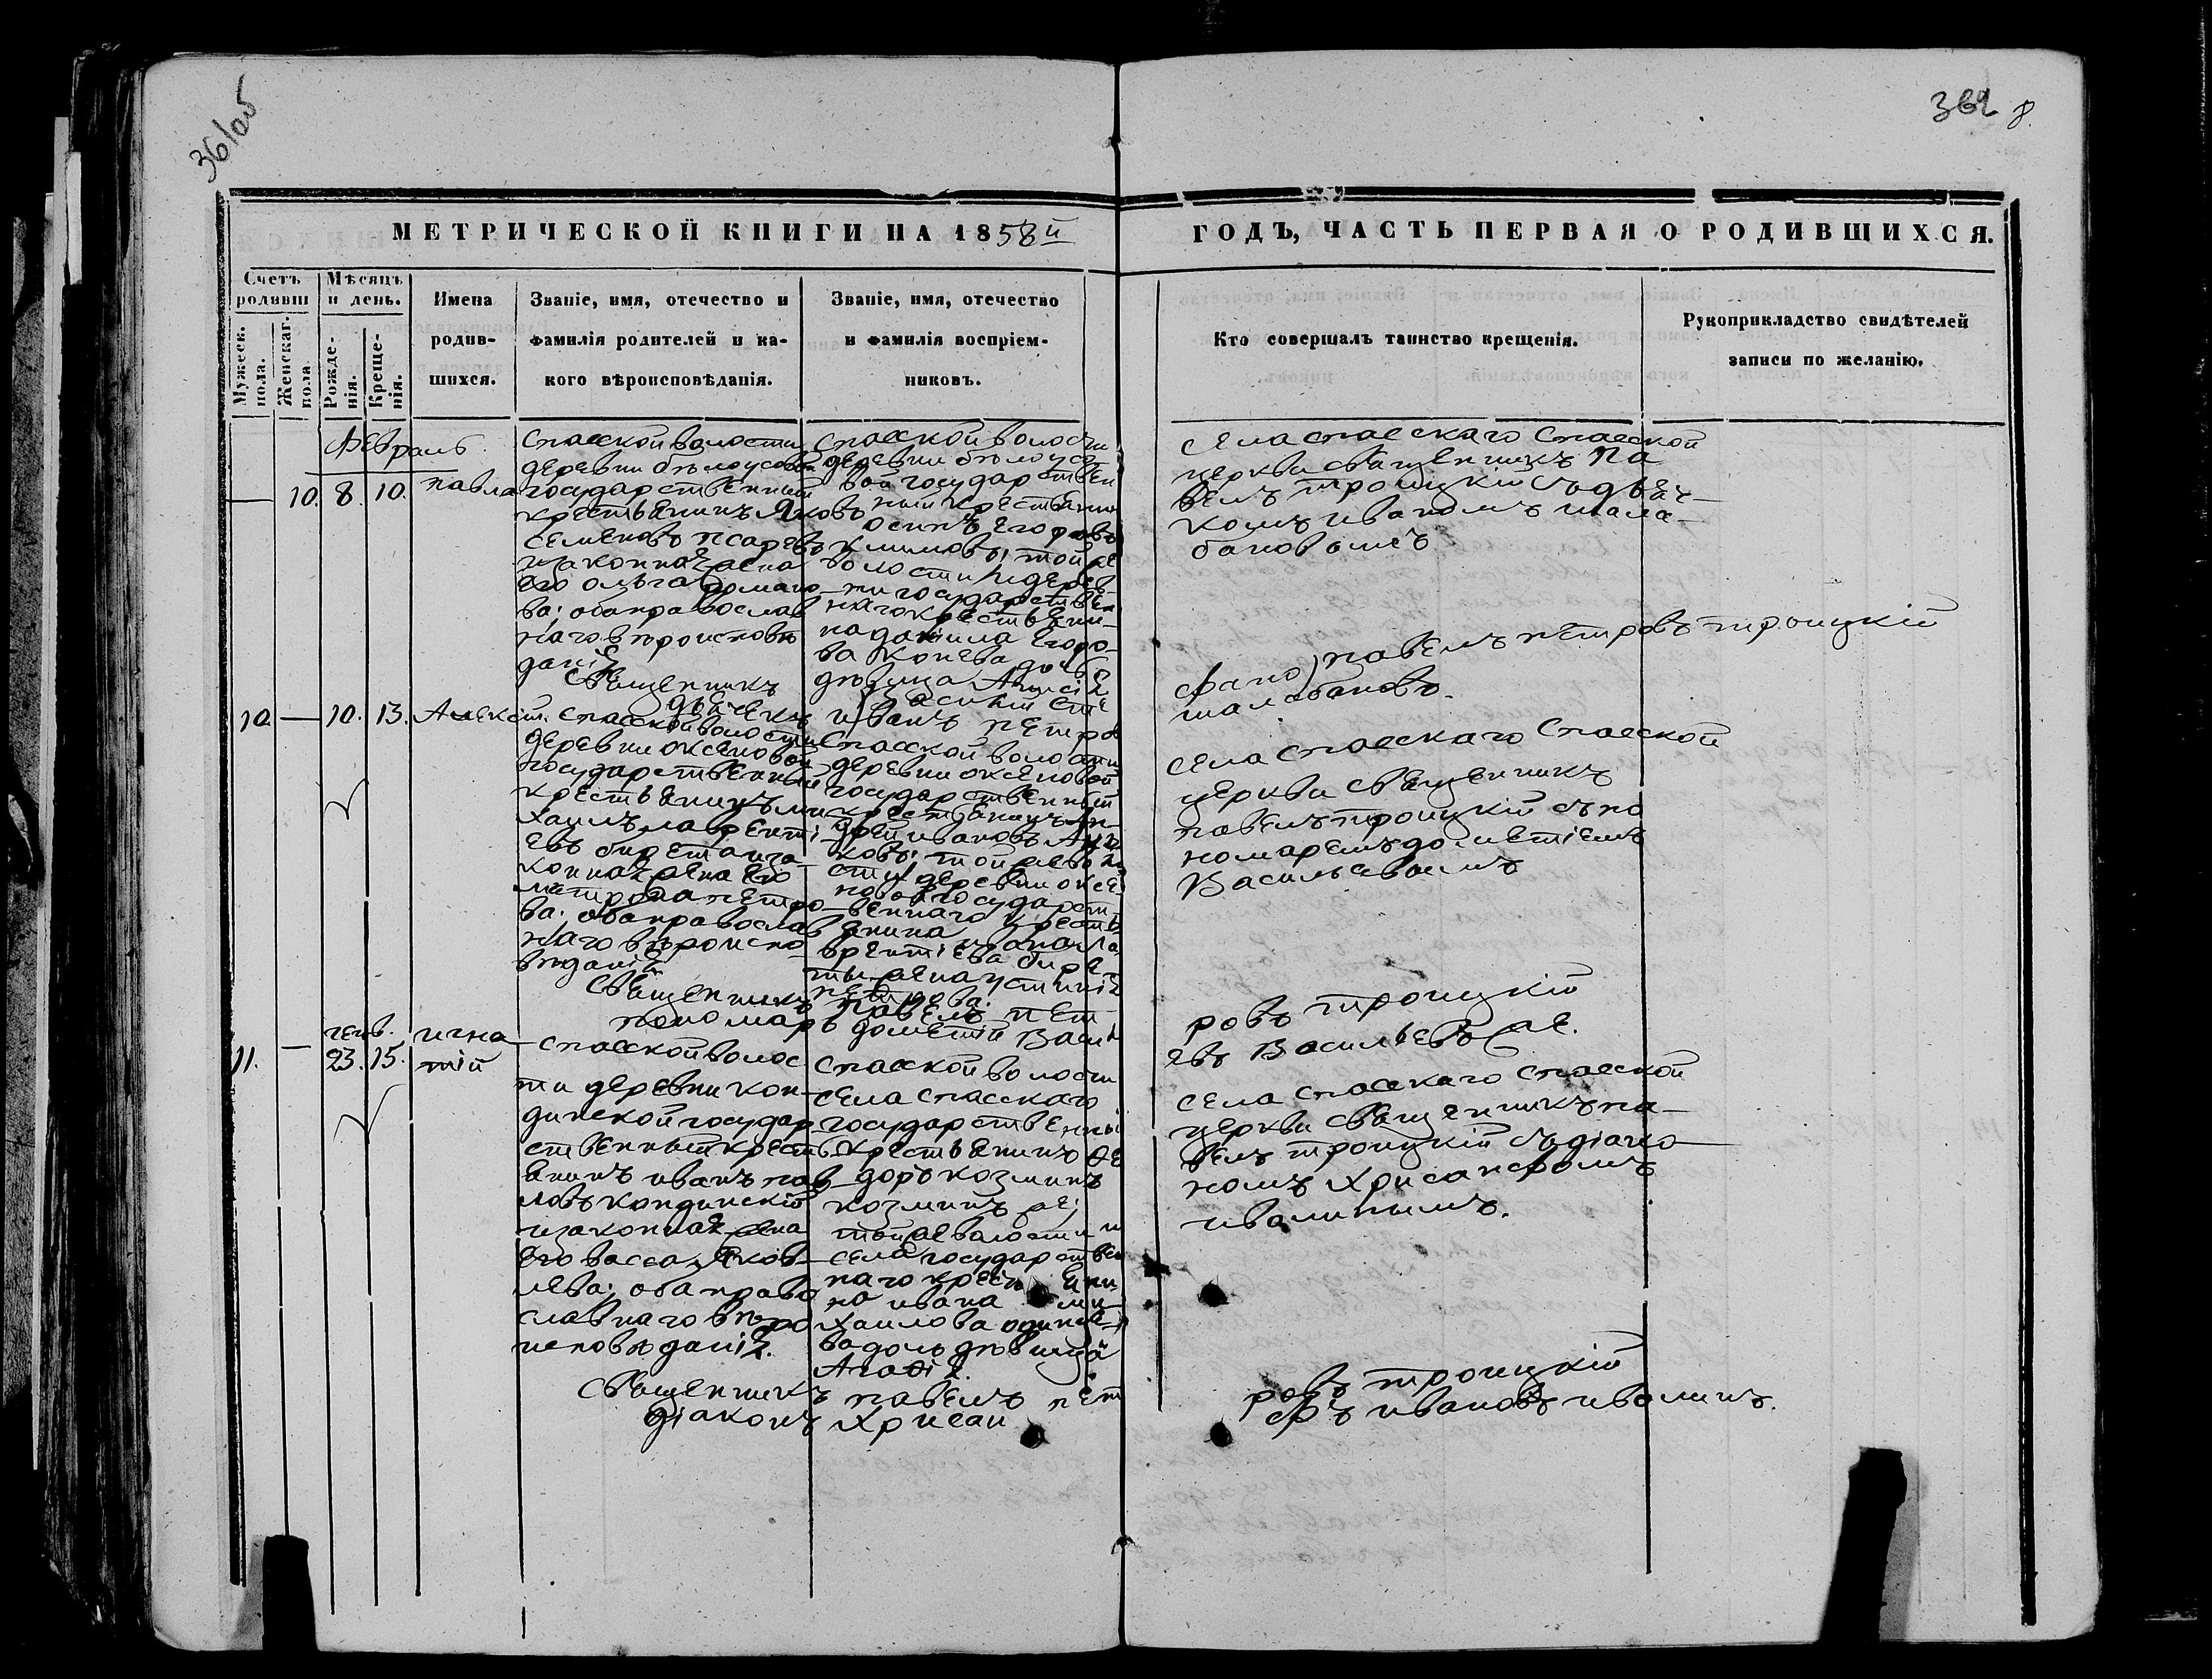 361об
362 8.
МЕТРИЧЕСКОЙ КНИГИ НА 1858й
ГОДЪ, ЧАСТЬ ПЕРВАЯ О РОДИВШИХСЯ.
Счетъ родивш
Мужеск. пола.
Женскаг. пола.
Мѣсяцъ и день.
Рожде-нія.
Креще-нія.
Имена
родив-
шихся.
Званіе, имя, отечество и
фамилія родителей и ка-
кого вѣроисповѣданія.
Званіе, имя, отечество
и фамилія воспріем-
никовъ.
Кто совершалъ таинство крещенія.
Рукоприкладство свидѣтелей
записи по желанію.
Февраль
— 10. 8. 10. павла
Спасской волости
деревни бѣлоусовой
государственный
крестьянинъ Яковъ
Семеновъ псаревъ
и законная жена
его ольга
ва; оба православ
наго вѣроисповѣ
данія
Спасской волости
деревни бѣлоусо
вой государствен
ный крестьянинъ
осипъ Егоровъ
климовъ; той же
волости и дерев
ни государствен
наго крестьяни-
на данила Егоро-
ва конева дочь
дѣвица Анисія
села спасскаго Спасской
церкви священникъ Па
велъ троицкій съ дьяч-
комъ иваномъ шала-
бановымъ
Священникъ
павелъ петровъ троицкій
дьячекъ иванъ
шалабановъ.
10. — 10. 13. Алексій.
Спасской волости
деревни оксеновой
государственный
крестьянинъ ми
хаилъ лаврентi
евъ биретъ и за-
конная жена его
матрона петро
ва; оба православ
наго вѣроиспо
вѣданія
Спасской волости
деревни оксеновой
государственный
крестьянинъ
ивановъ
ковъ; той же воло
сти деревни оксе
новой государст-
веннаго кресть
янина ивана ла
врентіева бире
ты жена устинія
петрова.
села спасскаго Спасской
церкви священникъ
павелъ троицкій съ по
номаремъ дометіемъ
Васильевымъ
Священникъ павелъ пет
ровъ троицкій
пономарь дометій Василь
евъ Васильевъ же.
11. — генв. 23. 15. игна
тій
Спасской волос
ти деревни кон-
динской государ
ственный кресть
янинъ иванъ пав
ловъ кондинскій
и законная жена
его васса Яков-
лева; оба право
славнаго вѣро
исповѣданія.
Спасской волости
села спасскаго
государственный
крестьянинъ Ѳе
доръ козминъ
козминъ же;
той же волости и
села государствен
наго крестьяни
на ивана ми
хаилова
ва дочь дѣвица
Агаѳія.
села спасскаго спасской
церкви священникъ па-
велъ троицкій съ діако-
номъ Хрисанфомъ
иволинымъ.
Священникъ павелъ пет
ровъ троицкій
діаконъ Хрисан
фъ ивановъ иволинъ.